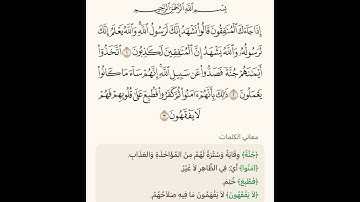 بِسْمِ ٱللَّهِ ٱلرَّحْمَٰنِ ٱلرَّحِيمِ
إِذَا جَآءَكَ ٱلْمُنَٰفِقُونَ قَالُوا۟ نَشْهَدُ إِنَّكَ لَرَسُولُ ٱللَّهِ ۗ وَٱللَّهُ يَعْلَمُ إِنَّكَ
لَرَسُولُهُۥ وَٱللَّهُ يَشْهَدُ إِنَّ ٱلْمُنَٰفِقِينَ لَكَٰذِبُونَ ١ ٱتَّخَذُوٓا۟
أَيْمَٰنَهُمْ جُنَّةً فَصَدُّوا۟ عَن سَبِيلِ ٱللَّهِ ۚ إِنَّهُمْ سَآءَ مَا كَانُوا۟
يَعْمَلُونَ ٢ ذَٰلِكَ بِأَنَّهُمْ ءَامَنُوا۟ ثُمَّ كَفَرُوا۟ فَطُبِعَ عَلَىٰ قُلُوبِهِمْ فَهُمْ
لَا يَفْقَهُونَ ٣
معاني الكلمات
﴿جُنَّةً﴾ وِقَايَةً وَسُتْرَةً لَهُمْ مِنَ المُؤَاخَذَةِ وَالعَذَابِ.
﴿آمَنُوا﴾ أَيْ: فِي الظَّاهِرِ لَا غَيْرُ.
﴿فَطُبِعَ﴾ خُتِمَ.
﴿لَا يَفْقَهُونَ﴾ لَا يَفْهَمُونَ مَا فِيهِ صَلَاحُهُمْ.